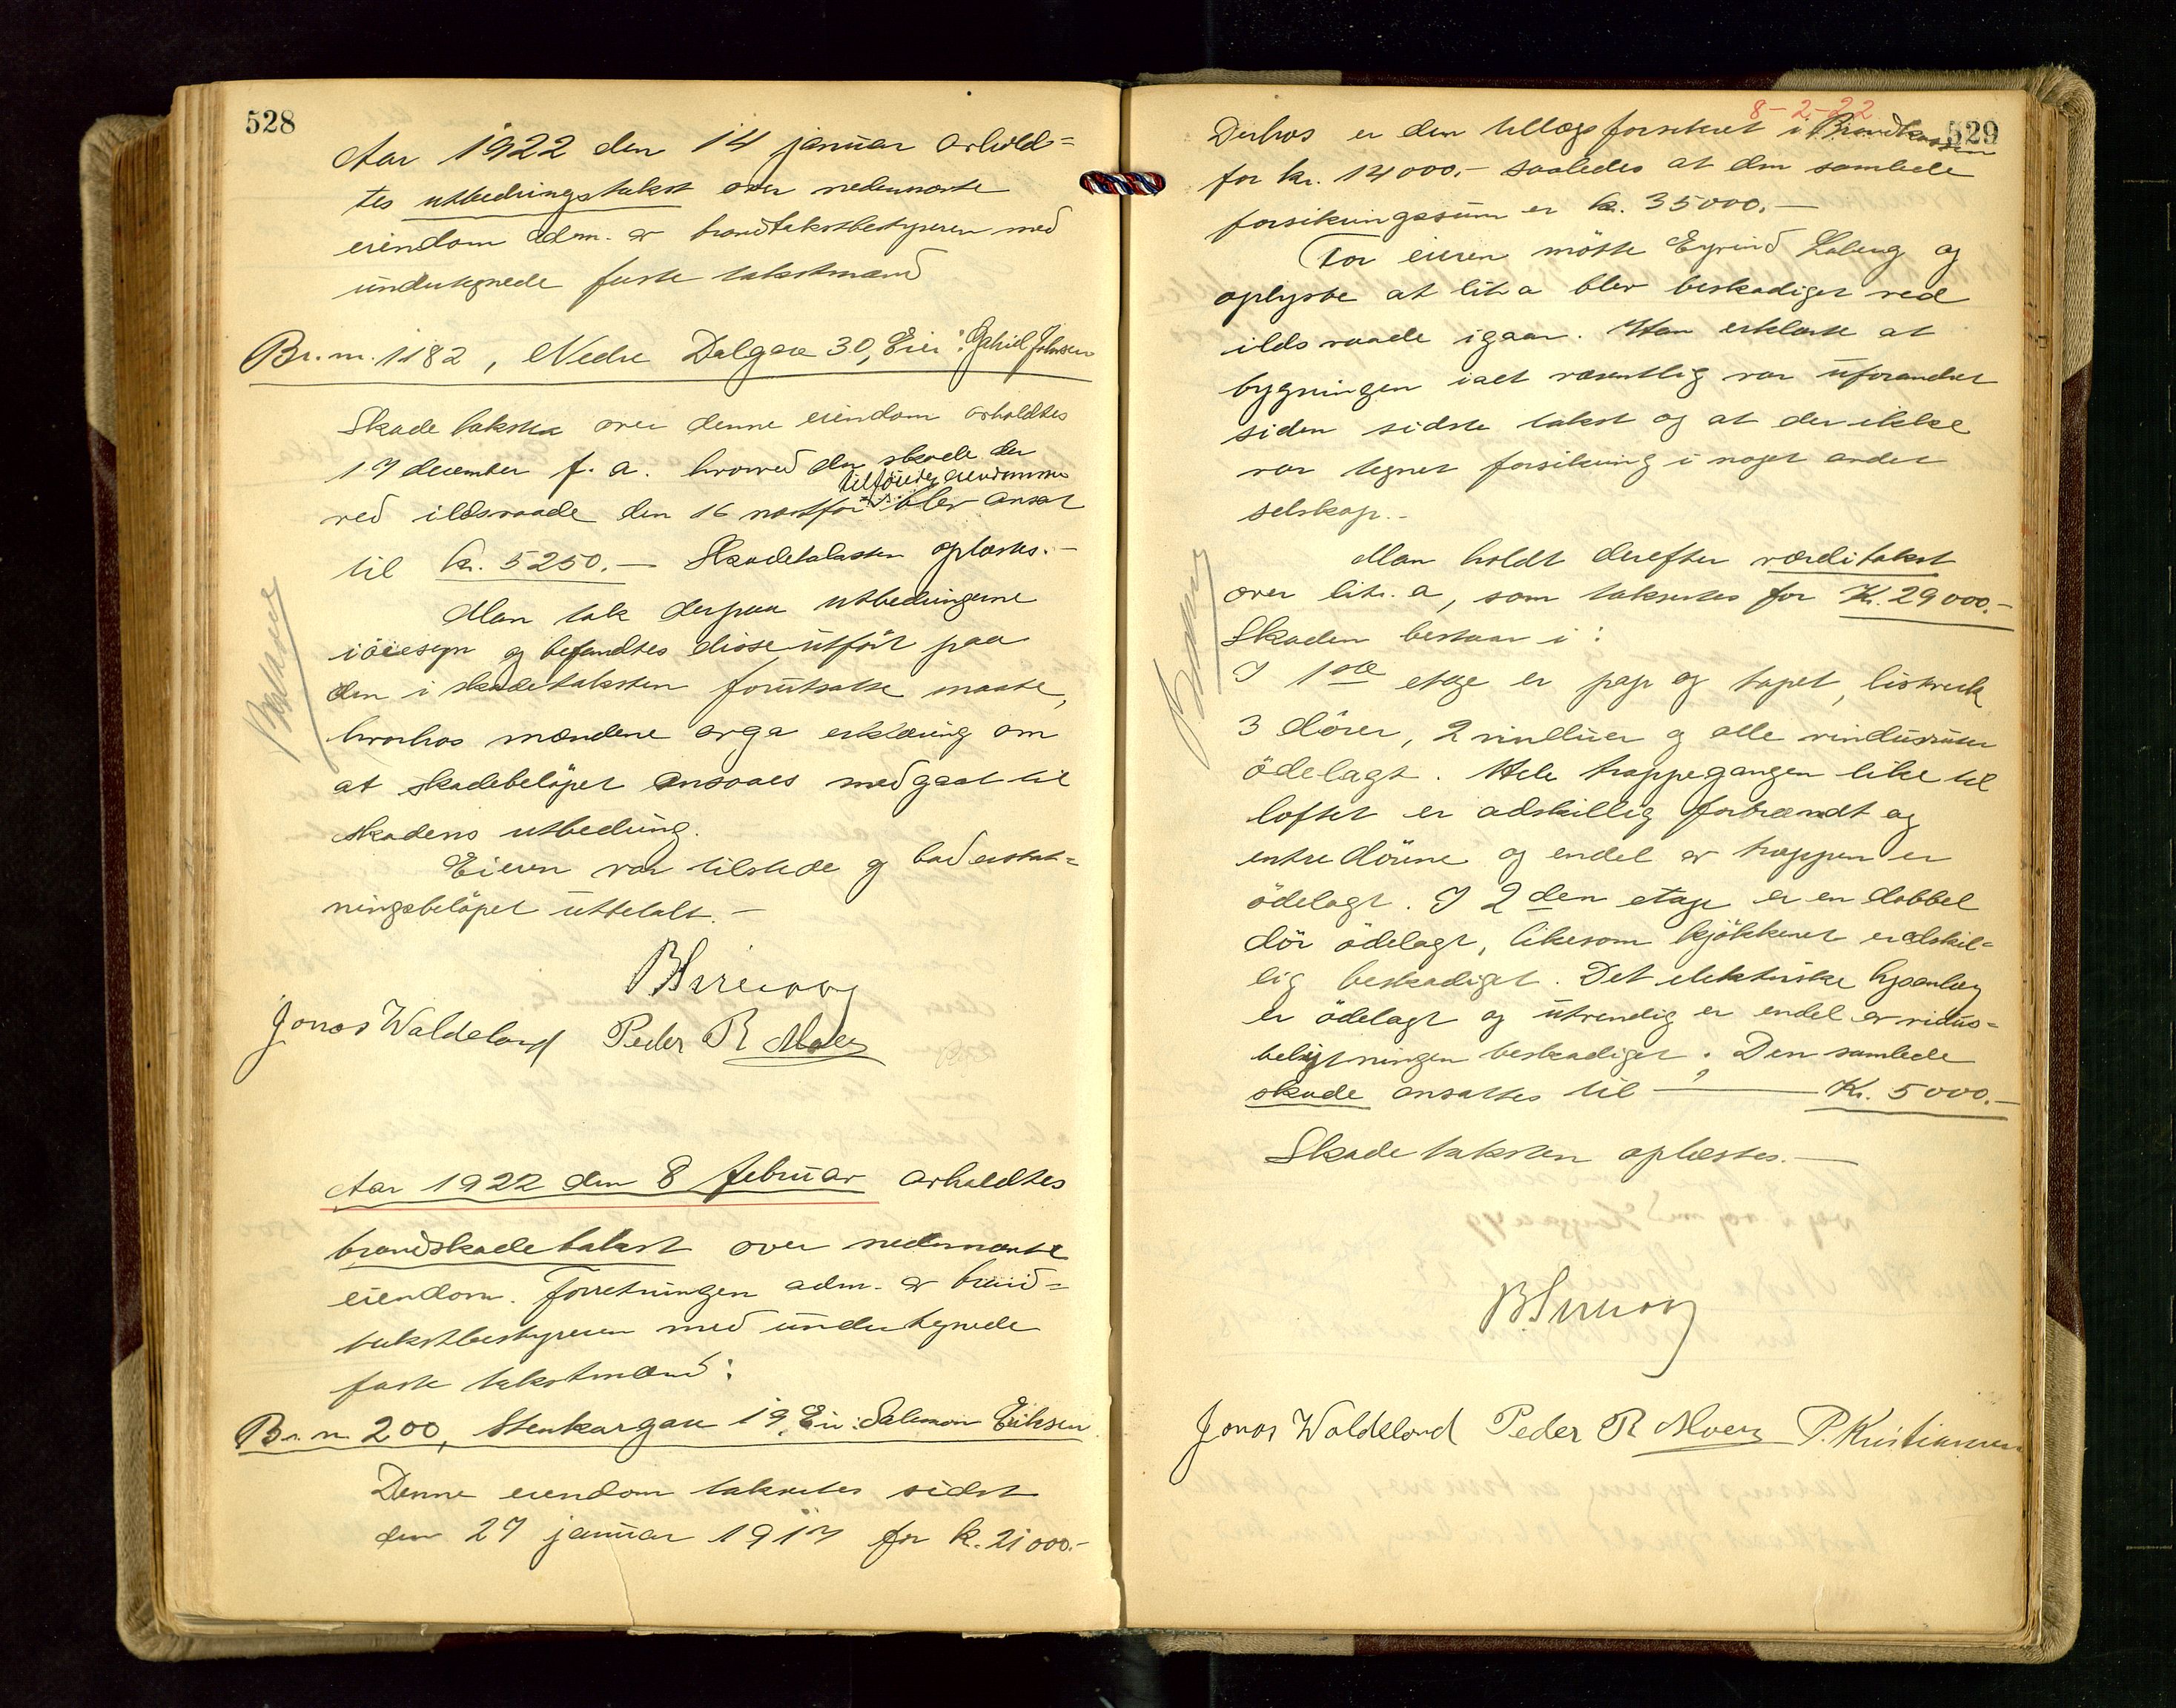 528
Aar 1922 den 14 januar avhold=
tes utbedringstakst over nedennævnte
eiendom adm. av brandtakstbestyreren med
undertegnede faste takstmænd
Br.nr. 1182, Nedre Dalgate 30, Eier: Johnsen
Skadetakster over denne eiendom avholdtes
17 december f. a. hvorved den skade der
tilföiedes eiendommen
ved ildsvaade den 16 næstfør blev ansat
til kr. 5250.— Skadetaksten oplæstes.-
Man tok derpaa utbedringerne
iöiesyn og befandtes disse utfört paa
den i skadetaksten forutsatte maate,
hvorhos mændene avga erklæring om
at skadebelöpet ansaaes medgaat til
skadens utbedring.
Eieren var tilstede og bad erstat=
ningsbelöpet utbetalt.-
Jonas Waldeland Peder R Moen
Aar 1922 den 8 februar avholdtes
brandskadetakst over nedennævnte
eiendom. Forretningen adm. av brand=
takstbestyreren med undertegnede
faste takstmænd:
Br.nr. 200, Stenkargaten 19, Eier: Salomon Eriksen
Denne eiendom takseredes sidst
den 27 januar 1917 for k. 21000.-
8-2-22
529
Derhos er den tillægsforsikret i Brandkassen
for kr. 14000.- saaledes at den samlede
forsikringssum er k. 35000.—
For eieren mötte Eyvind Loberg og
oplyste at lit. a blev beskadiget ved
ildsvaade igaar. Han erklærte at
bygningen ialt væsentlig var uforandret
siden sidste takst og at der ikke
var tegnet forsikring i noget andet
selskap.-
Man holdt derefter værditakst
over litr. a, som taksertes for Kr. 29000.-
Skaden bestaar i:
I 1ste etage er pap og tapet, listverk
3 dörer, 2 vinduer og alle vindusruter
ödelagt. Hele trappegangen like til
loftet er adskillig forbrændt og
entredörene og endel av trappen er
ödelagt. I 2den etage er en dobbel
dör ödelagt, likesom kjökkenet er adskil=
lig beskadiget. Det elektriske lysanlæg
er ödelagt og utvendig er endel av vindus=
belistningen beskadiget. Den samlede
skade ansattes til — Kr. 5000.-
Skadetaksten oplæstes.—
Jonas Waldeland Peder R Moen P. Kristiansen